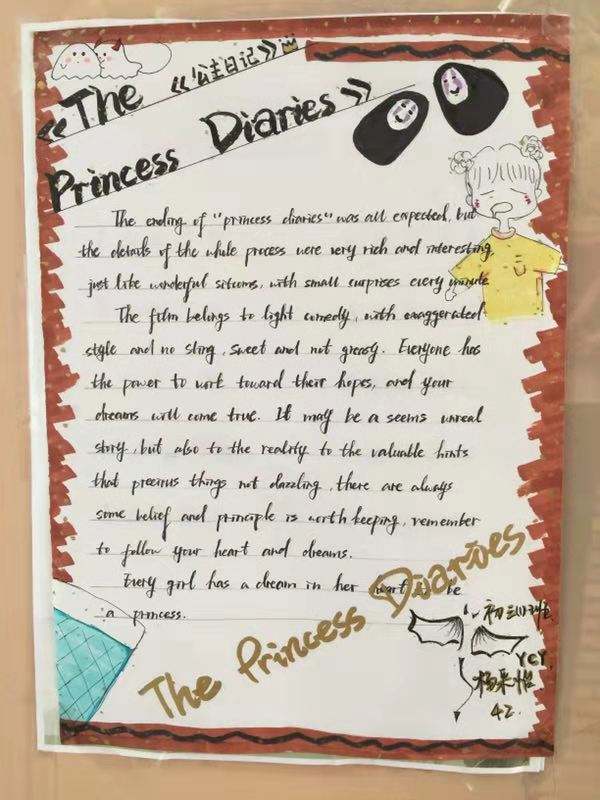 《公主日记》
《The
Princess Diaries》
The ending of "princess diaries" was all expected, but
the details of the whole process were very rich and interesting,
just like wonderful sitcoms, with small surprises every minute
The film belongs to light comedy, with exaggerated
style and no sting, sweet and not greasy. Everyone has
the power to work toward their hopes, and your
dreams will come true. It may be a seems unreal
story, but also to the reality to the valuable hints
that precious things not dazzling, there are always
some belief and principle is worth keeping, remember
to follow your heart and dreams.
Every girl has a dream in her heart to be
a princess.
The Princess Diaries
YCY.
42.